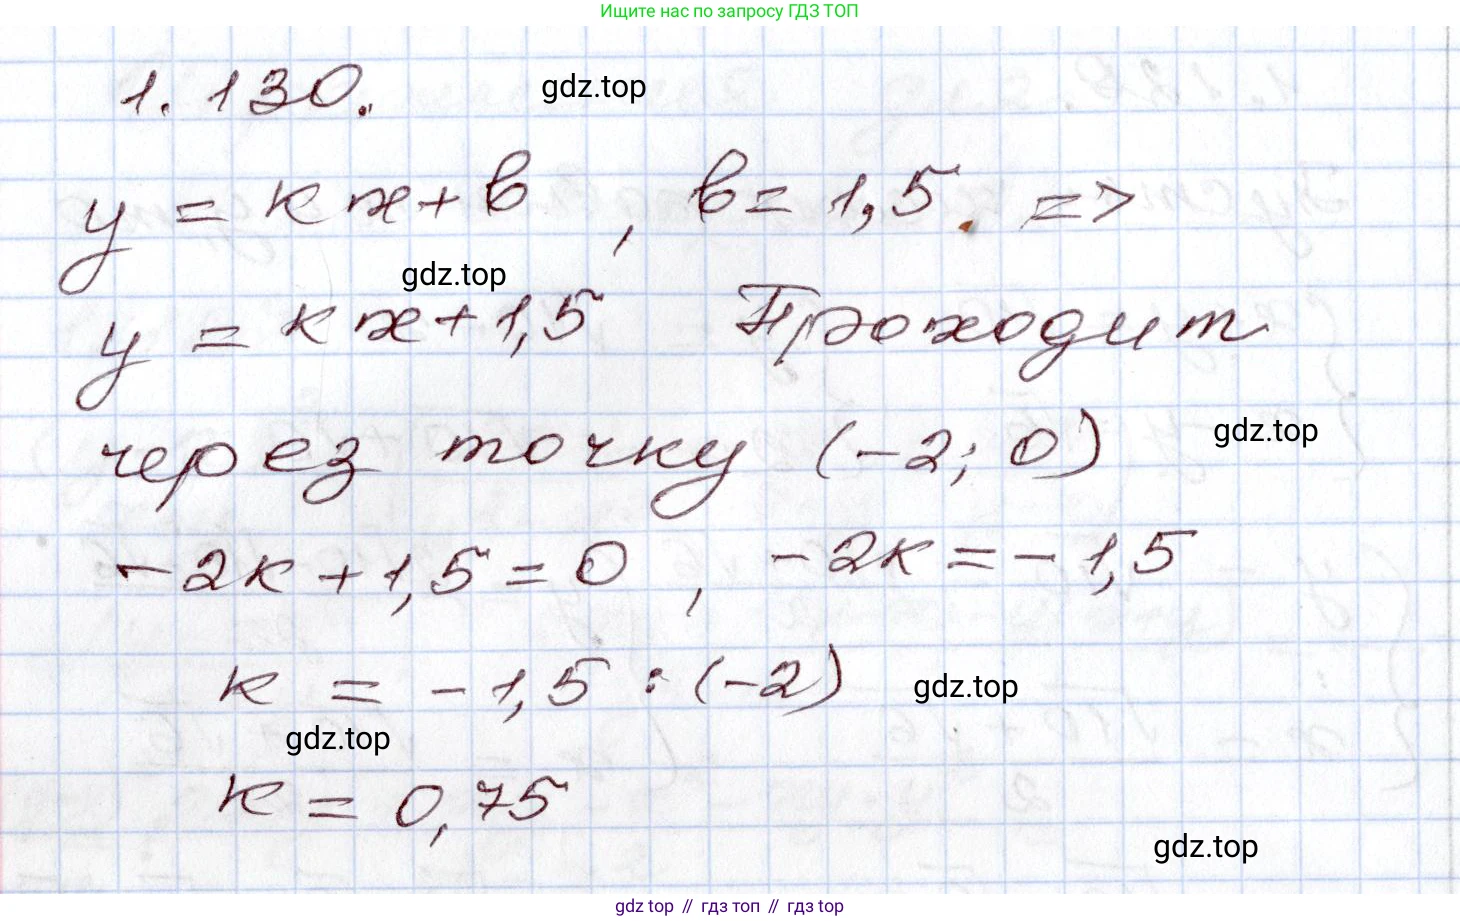 Ищите нас по запросу ГДЗ ТОП
1.130. gdz.top
y = kx + b, b = 1,5. =>
gdz.top
y = kx + 1,5 Проходит
через точку (-2; 0) gdz.top
-2k + 1,5 = 0, -2k = -1,5
k = -1,5 : (-2) gdz.top
gdz.top
k = 0,75
gdz.top
gdz top // гдз топ // гдз top